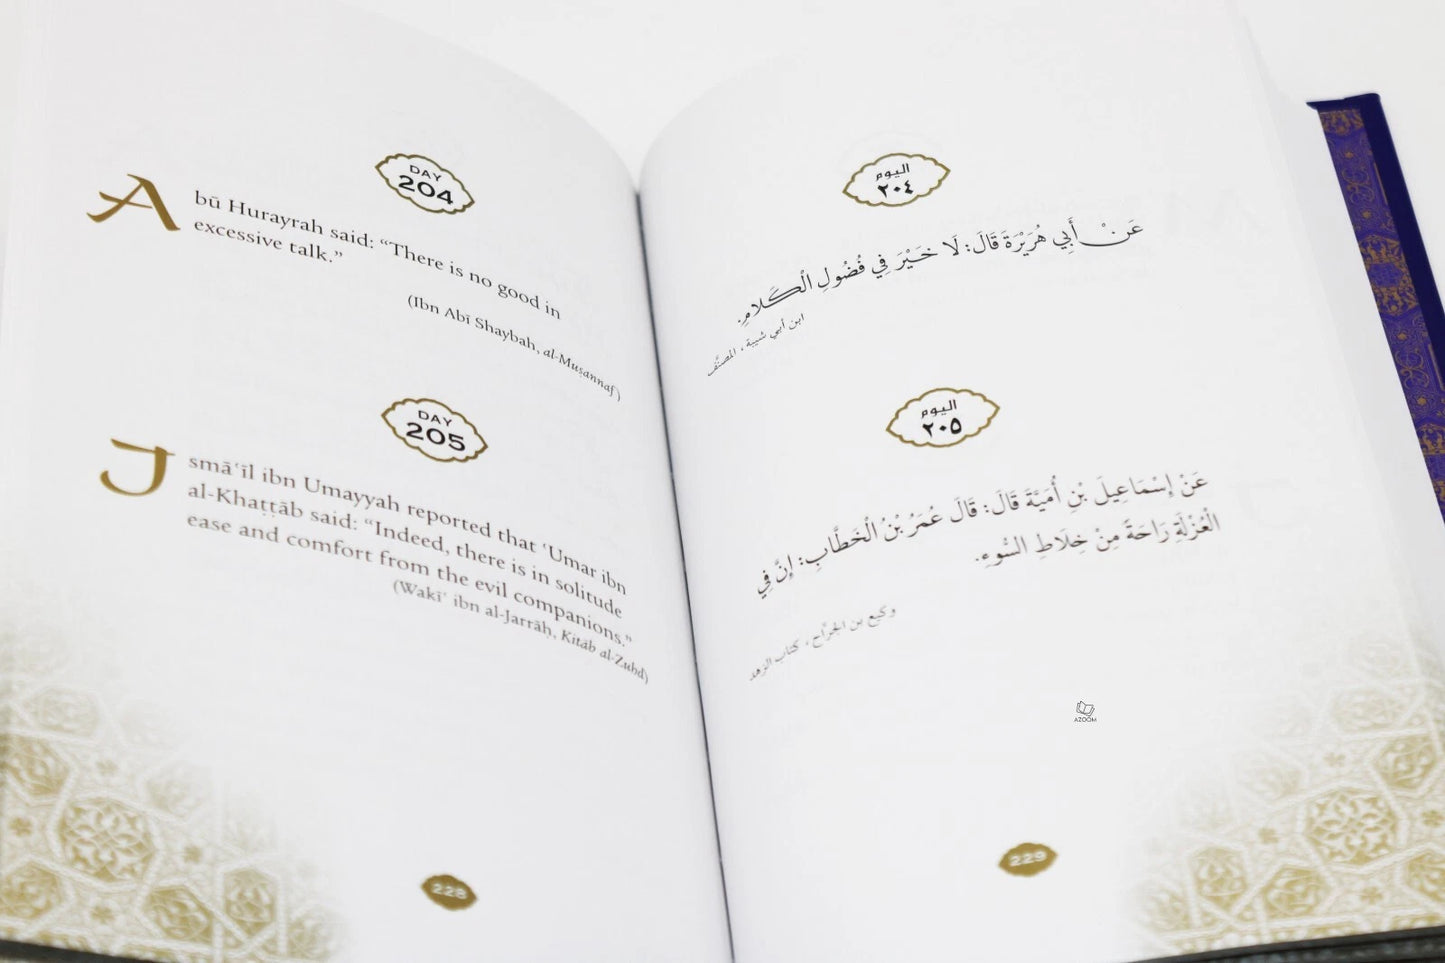 DAY
204
Abū Hurayrah said: “There is no good in
excessive talk.”
(Ibn Abī Shaybah, al-Muṣannaf)
DAY
205
Ismāʿīl ibn Umayyah reported that ʿUmar ibn
al-Khaṭṭāb said: “Indeed, there is in solitude
ease and comfort from the evil companions.”
(Wakīʿ ibn al-Jarrāḥ, Kitāb al-Zuhd)
228
اليوم
٢٠٤
عَنْ أَبِي هُرَيْرَةَ قَالَ: لَا خَيْرَ فِي فُضُولِ الْكَلَامِ.
ابن أبي شيبة، المصنَّف
اليوم
٢٠٥
عَنْ إِسْمَاعِيلَ بْنِ أُمَيَّةَ قَالَ: قَالَ عُمَرُ بْنُ الْخَطَّابِ: إِنَّ فِي
الْعُزْلَةِ رَاحَةً مِنْ خِلَاطِ السُّوءِ.
وكيع بن الجرَّاح، كتاب الزهد
AZOOM
229